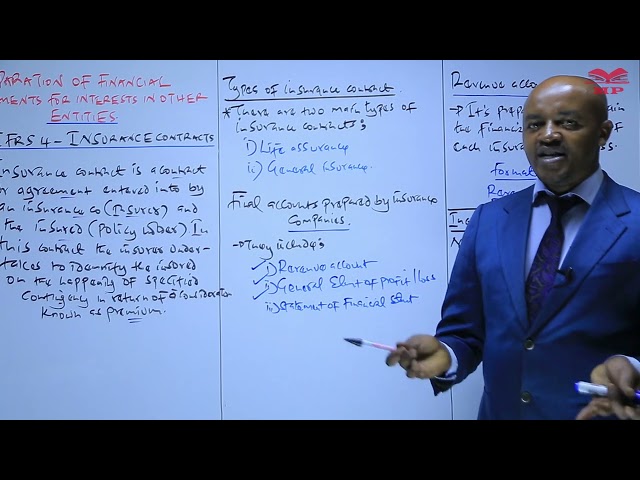 PARATION OF FINANCIAL
MENTS FOR INTERESTS IN OTHER
ENTITIES
IFRS 4 - INSURANCE CONTRACTS
Insurance contract is a contract
or agreement entered into by
an insurance co (Insurer) and
the insured (Policy holder) In
this contract the insurer under-
takes to idemnity the insured
on the happening of specified
contigency in return of a consideration
known as premium.
Types of insurance contract
* There are two main types of
insurance contracts;
i) Life assurance
ii) General insurance.
Final accounts prepared by insurance
Companies.
→ They include;
i) Revenue account
ii) General Stmt of profit/loss
iii) Statement of Financial
Revenue accou
→ It's prepa
the financi
each insur s.
Format
Reve
MP